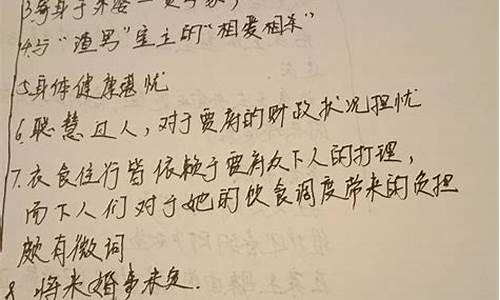 3.寄身于外婆
4.与“渣男”宝玉的“相爱相杀”
5.身体健康堪忧
6.聪慧过人,对于贾府的财政状况担忧
7.衣食住行皆依赖于贾府及下人的打理,
而下人们对于她的饮食调度带来的负担
颇有微词
8.将来婚事未定.